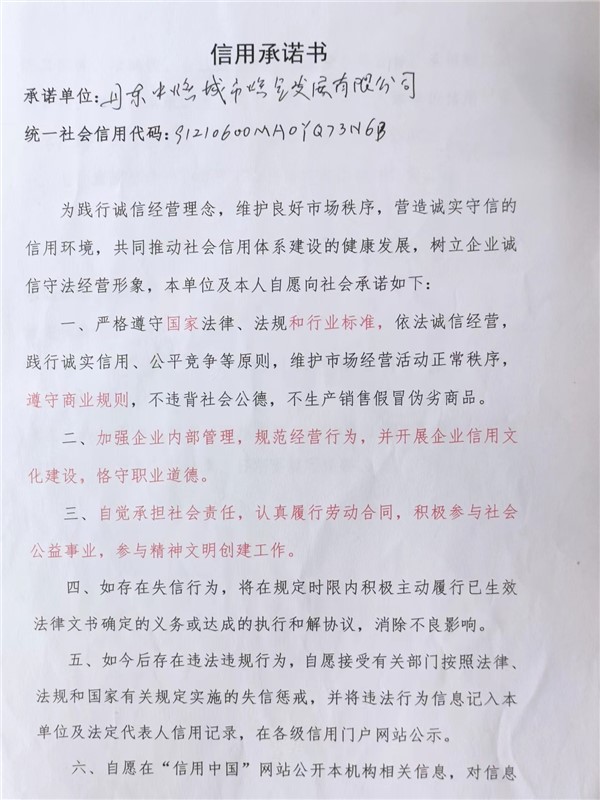 信用承诺书
承诺单位:丹东中燃城市燃气发展有限公司
统一社会信用代码:91210600MA0YQ73N6B
为践行诚信经营理念，维护良好市场秩序，营造诚实守信的
信用环境，共同推动社会信用体系建设的健康发展，树立企业诚
信守法经营形象，本单位及本人自愿向社会承诺如下：
一、严格遵守国家法律、法规和行业标准，依法诚信经营，
践行诚实信用、公平竞争等原则，维护市场经营活动正常秩序，
遵守商业规则，不违背社会公德，不生产销售假冒伪劣商品。
二、加强企业内部管理，规范经营行为，并开展企业信用文
化建设，恪守职业道德。
三、自觉承担社会责任，认真履行劳动合同，积极参与社会
公益事业，参与精神文明创建工作。
四、如存在失信行为，将在规定时限内积极主动履行已生效
法律文书确定的义务或达成的执行和解协议，消除不良影响。
五、如今后存在违法违规行为，自愿接受有关部门按照法律、
法规和国家有关规定实施的失信惩戒，并将违法行为信息记入本
单位及法定代表人信用记录，在各级信用门户网站公示。
六、自愿在“信用中国”网站公开本机构相关信息，对信息